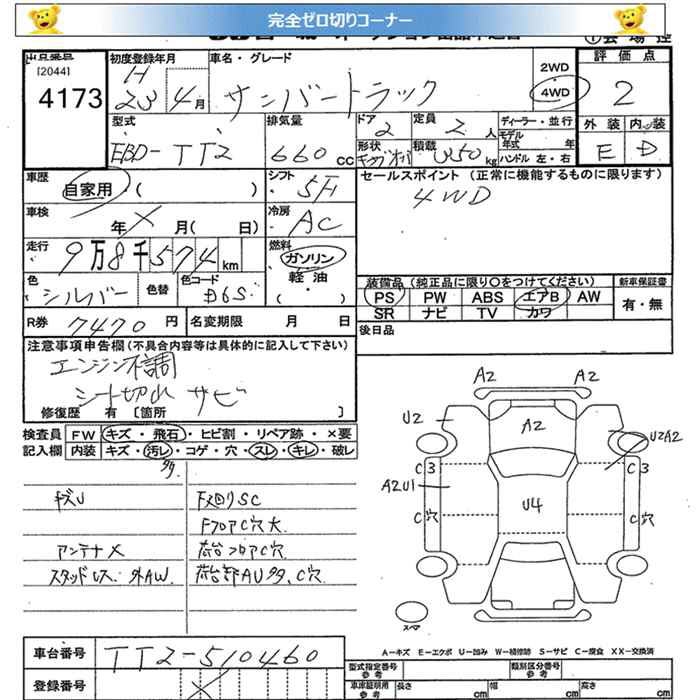 完全ゼロ切りコーナー
出品番号 初度登録年月 車名・グレード 2WD 評価点
[2044] H
4173 23 4月 サンバートラック 4WD 2
型式 排気量 ドア 定員 ディーラー・並行 外装 内装
EBD-TT2 660cc 2 2人 モデル年式 年 E D
形状 積載 kg ハンドル 左・右
車歴 シフト セールスポイント (正常に機能するものに限ります)
自家用・( ) 5F 4WD
車検 年 X 月( 日) 冷房 AC
走行 9万8千574km 燃料 ガソリン
軽油
( )
色 シルバー 色替 色コード D6S
装備品(純正品に限り○をつけてください) 新車保証書
PS PW ABS エアB AW 有・無
SR ナビ TV カワ
R券 7470円 名変期限 月 日 後日品
注意事項申告欄(不具合内容等は具体的に記入して下さい)
エンジン不調
シート切れ サビ
修復歴 有 [箇所 ]
検査員 FW キズ・飛石・ヒビ割・リペア跡・×要
記入欄 内装 キズ・汚レ・コゲ・穴・スレ・キレ・破レ
多
キズU 下廻りSC
FフロアC穴大
アンテナX 荷台フロアC穴
スタッドレス、外AW. 荷台部AU多、C穴
A2 A2
U2 A2 U2A2
C3 C3
A2U1 U4
C穴 C穴
スペア
A-キズ E-エクボ U-凹み W-補修跡 S-サビ C-腐食 XX-交換済
車台番号 TT2-510460 型式指定番号 参考 類別区分番号 参考
登録番号 X 車庫証明用 参考 長さ cm 幅 cm 高さ cm